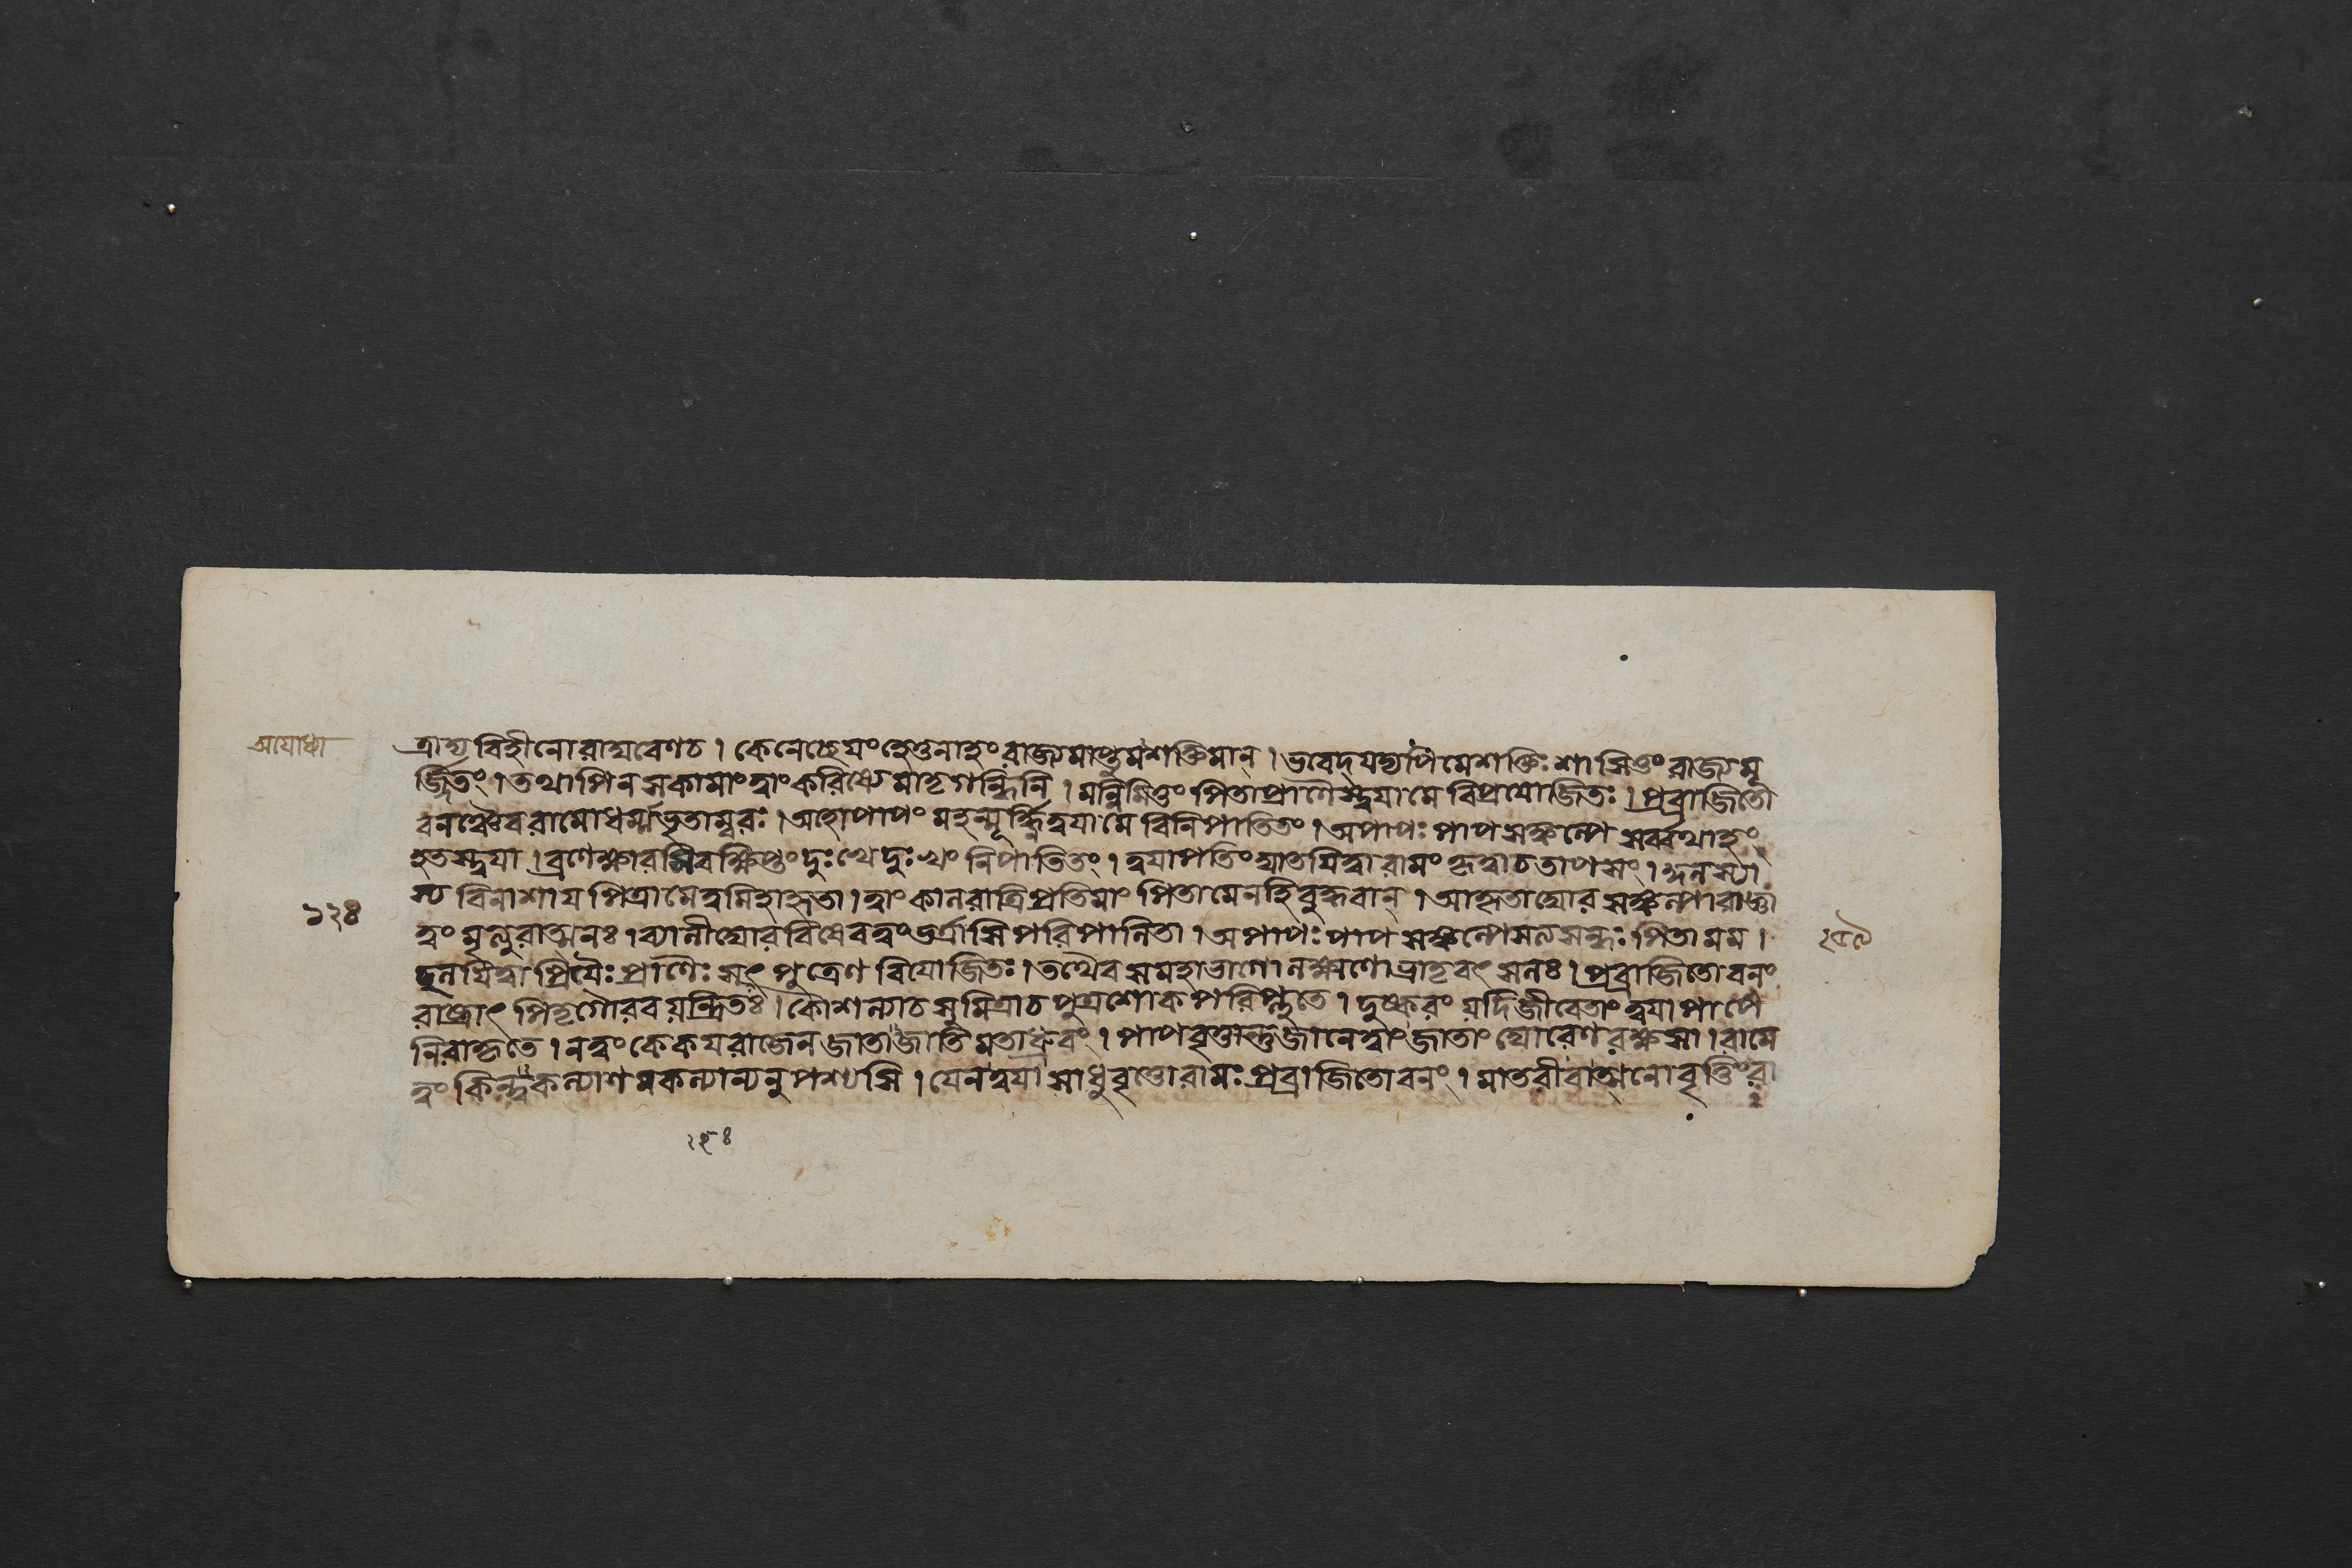 অযোধ্যা
ভ্রাত্রা বিহীনো রামেণ চ। কেনেচ্ছেযং হেতুনাহং রাজ্যমাপ্তুমশক্তিমান্। ভবেদ্ যদ্যপি মে শক্তিঃ শাসিতুং রাজ্যমূ
র্জ্জিতং। তথাপি ন সকামাং ত্বাং করিষ্যে মাতৃগন্ধিনি। মন্নিমিত্তং পিতা প্রাণৈস্ত্বযা মে বিপ্রযোজিতঃ। প্রব্রাজিতো
বনঞ্চৈব রামো ধর্ম্মভৃতাম্বরঃ। অহো পাপং মহন্মূর্দ্ধ্নি ত্বযা মে বিনিপাতিতং। অপাপঃ পাপসঙ্কল্পে সর্ব্বথাহং
হতস্ত্বযা। ব্রণে ক্ষারমিব ক্ষিপ্তং দুঃখে দুঃখং নিপাতিতং। ত্বযা পতিং ঘাতযিত্বা রামং কৃত্বা চ তাপসং। কুলস্যা
স্য বিনাশায পিত্রা মে ত্বমিহাহৃতা। ত্বাং কালরাত্রিপ্রতিমাং পিতা মে নহি বুদ্ধবান্। আহৃতা ঘোরসঙ্কল্পা রাজ্ঞা
১২৪
ত্বং মৃত্যুরাত্মনঃ। ব্যালী ঘোরবিষেব ত্বং ভর্ত্রাসি পরিপালিতা। অপাপঃ পাপসঙ্কল্পে সত্যসন্ধঃ পিতা মম।
ছলযিত্বা প্রিযৈঃ প্রাণৈঃ সৎপুত্রেণ বিযোজিতঃ। তথৈব স মহাভাগো লক্ষ্মণো ভ্রাতৃবৎসলঃ। প্রব্রাজিতো বনং
রাজ্যাৎ পিতৃগৌরবযন্ত্রিতঃ। কৌশল্যা চ সুমিত্রা চ পুত্রশোকপরিপ্লুতে। দুষ্করং যদি জীবেতাং ত্বযা পাপে
নিরাকৃতে। ন ত্বং কেকযরাজেন জাতা জাতিমতা ধ্রুবং। পাপবৃত্তাস্তু জানে ত্বাং জাতাং ঘোরেণ রক্ষসা। রামে
ত্বং কিন্ত্বকল্যাণমকল্যাণ্যনুপশ্যসি। যেন ত্বযা সাধুবৃত্তো রামঃ প্রব্রাজিতো বনং। মাতরীবাত্মনো বৃত্তিং রা